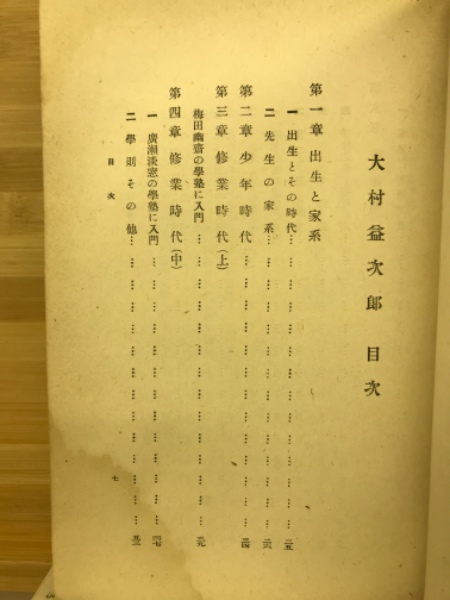 大村益次郎 目次
第一章 出生と家系
一 出生とその時代……………………………………二五
二 先生の家系……………………………………二六
第二章 少年時代……………………………………
第三章 修業時代(上)
梅田幽齋の學塾に入門……………………………………
第四章 修業時代(中)
一 廣瀬淡窓の學塾に入門……………………………………四七
二 學則その他……………………………………
目次
七